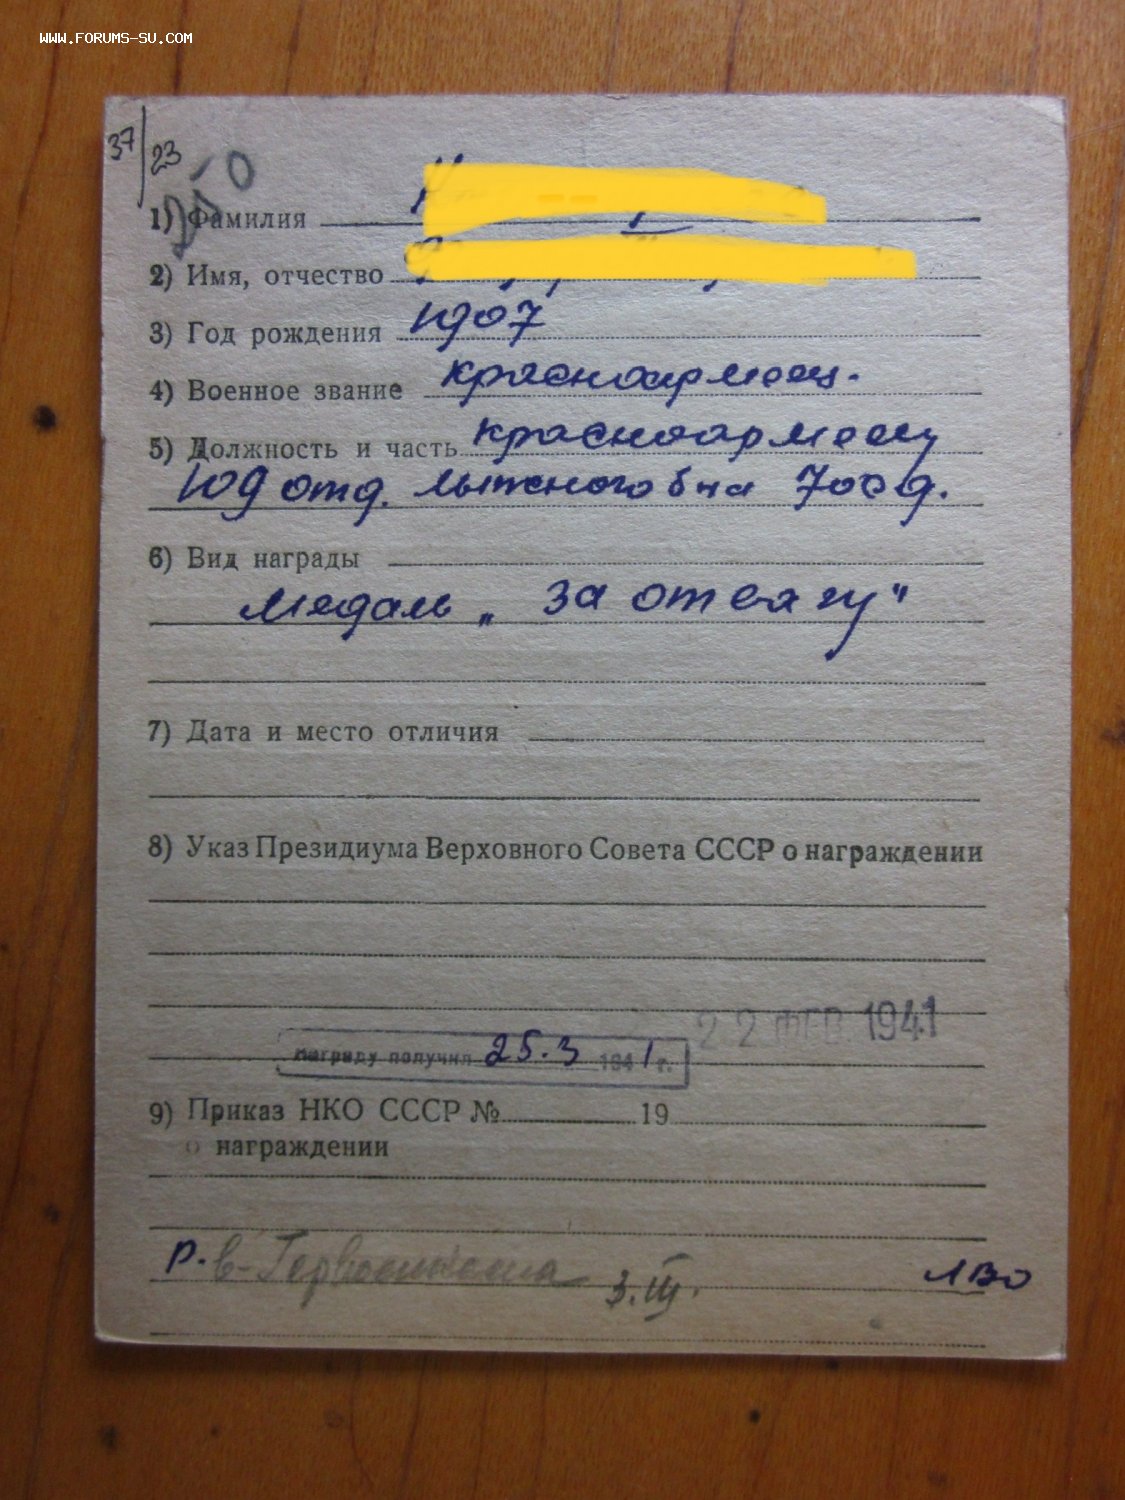 WWW.FORUMS-SU.COM
37/23
1) Фамилия
2) Имя, отчество
3) Год рождения 1907
4) Военное звание красноармеец.
5) Должность и часть красноармеец
109 отд. лыжного б-на 70 с.д.
6) Вид награды
Медаль „За отвагу"
7) Дата и место отличия
8) Указ Президиума Верховного Совета СССР о награждении
22 ФЕВ 1941
Награду получил 25.3 1941 г.
9) Приказ НКО СССР № 19
о награждении
р. в- 3.III. ЛВО